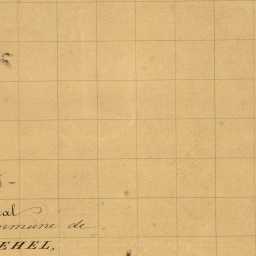 al
mmune de
EHEL,